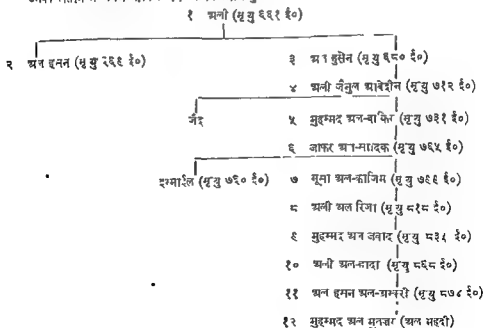 १ अली (मृत्यु ६६१ ई०)
२ अल हसन (मृत्यु २६९ ई०) ३ अल हुसेन (मृत्यु ६८० ई०)
४ अली जैनुल आबेदीन (मृत्यु ७१२ ई०)
जैद ५ मुहम्मद अल-बाकिर (मृत्यु ७३१ ई०)
६ जाफर अल-सादिक (मृत्यु ७६५ ई०)
इस्माईल (मृत्यु ७६० ई०) ७ मूसा अल-काजिम (मृत्यु ७९९ ई०)
८ अली अल रिजा (मृत्यु ८१८ ई०)
९ मुहम्मद अल जवाद (मृत्यु ८३५ ई०)
१० अली अल-हादी (मृत्यु ८६८ ई०)
११ अल हसन अल-अस्करी (मृत्यु ८७४ ई०)
१२ मुहम्मद अल मुन्तज़र (अल महदी)